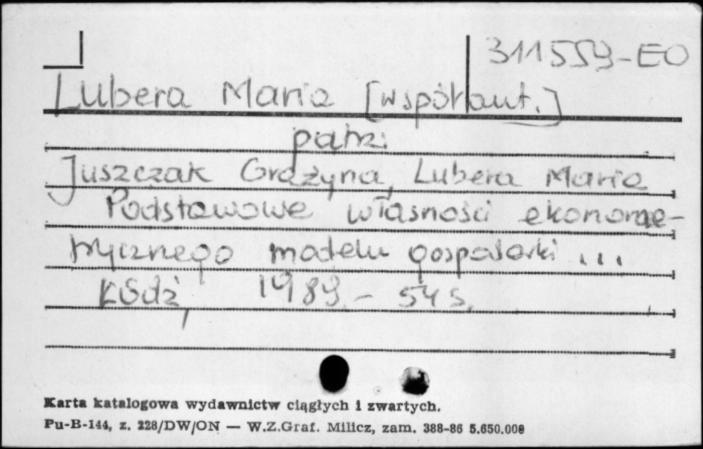 311559-EO
Lubera Maria [współaut.]
patrz:
Juszczak Grażyna, Lubera Maria
Podstawowe własności ekonome-
trycznego modelu gospodarki ...
Łódź, 1989. - 54 s.
Karta katalogowa wydawnictw ciągłych i zwartych.
Pu-B-144, z. 228/DW/ON — W.Z.Graf. Milicz, zam. 388-86 5.650.000